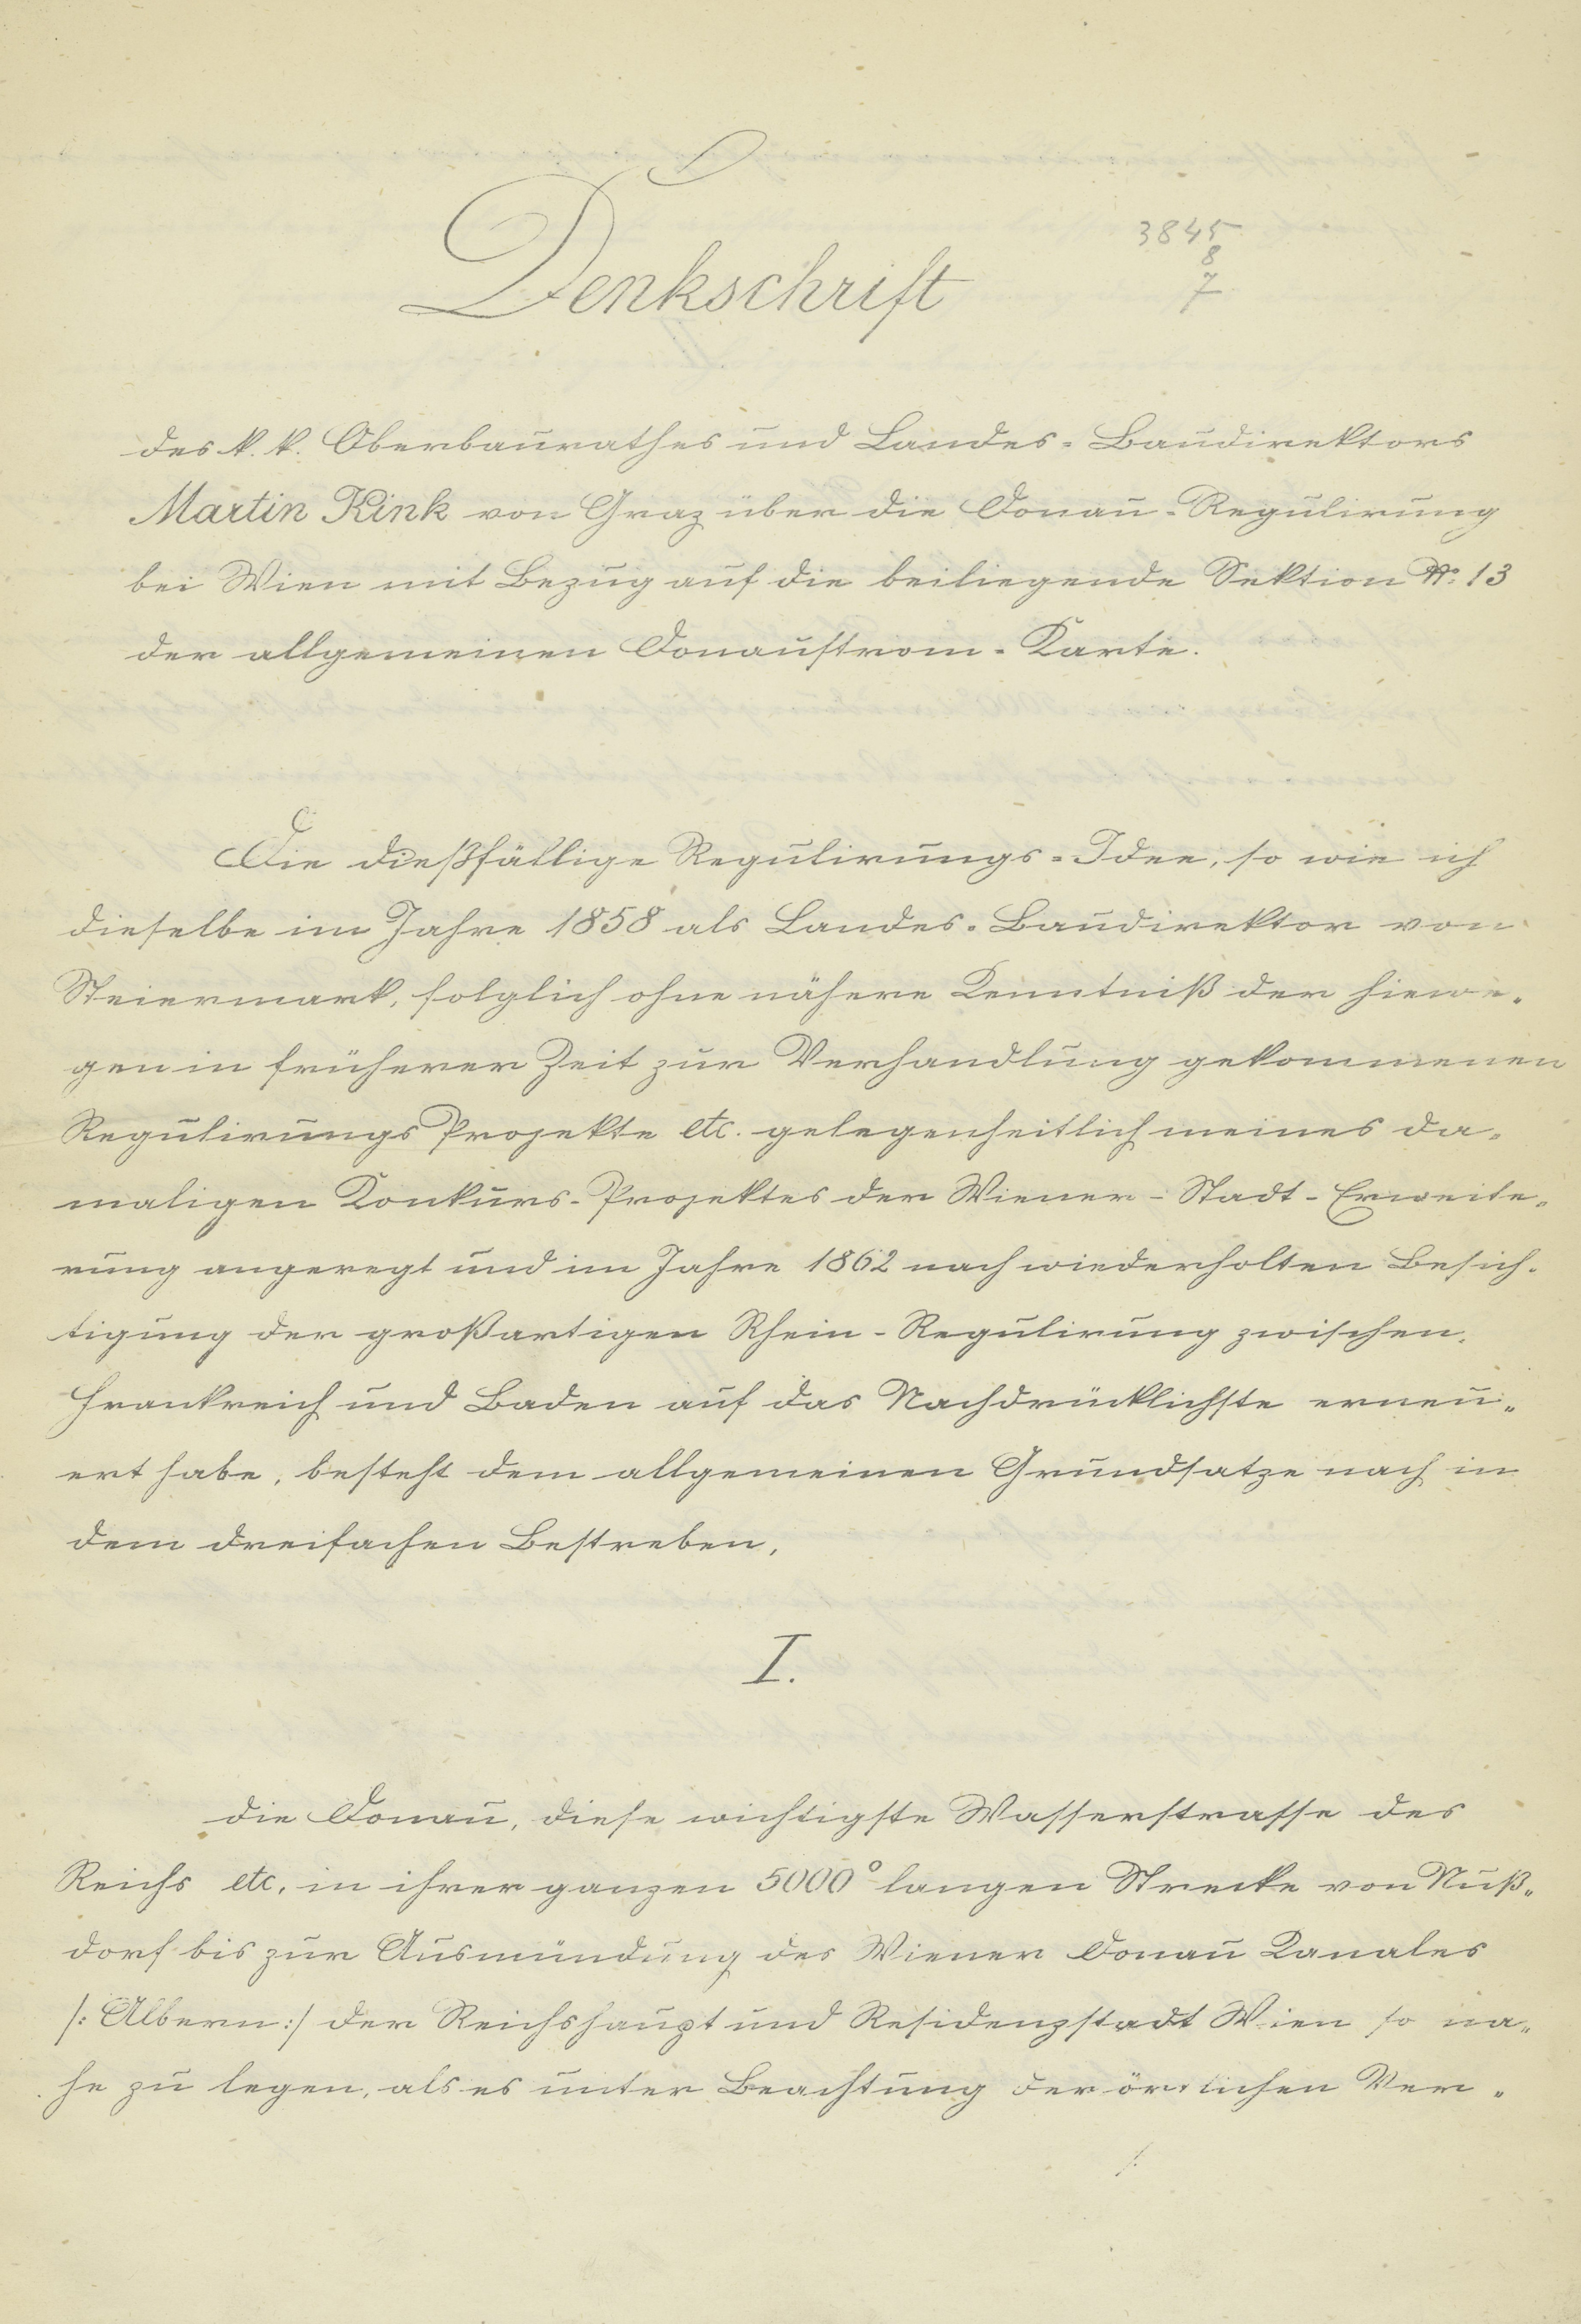 Denkschrift
3845
8
7
des k. k. Oberbaurathes und Landes-Baudirektors
Martin Kink von Graz über die Donau-Regulirung
bei Wien mit Bezug auf die beiliegende Sektion No. 13
der allgemeinen Donaustrom-Karte.
Die dießfällige Regulirungs-Idee, so wie ich
dieselbe im Jahre 1858 als Landes-Baudirektor von
Steiermark, folglich ohne nähere Kenntniß der hiewe-
gen in früherer Zeit zur Verhandlung gekommenen
Regulirungs Projekte etc. gelegenheitlich meines da-
maligen Konkurs-Projektes der Wiener-Stadt-Erweite-
rung angeregt und im Jahre 1862 nach wiederholten Besich-
tigung der großartigen Rhein-Regulirung zwischen
Frankreich und Baden auf das Nachdrücklichste erneu-
ert habe, besteht dem allgemeinen Grundsatze nach in
dem dreifachen Bestreben,
I.
die Donau, diese wichtigste Wasserstrasse des
Reichs etc. in ihrer ganzen 5000° langen Strecke von Nuß-
dorf bis zur Ausmündung des Wiener Donau Kanales
/: Albern :/ der Reichshaupt und Residenzstadt Wien so na-
he zu legen, als es unter Beachtung der örtlichen Ver-
/.